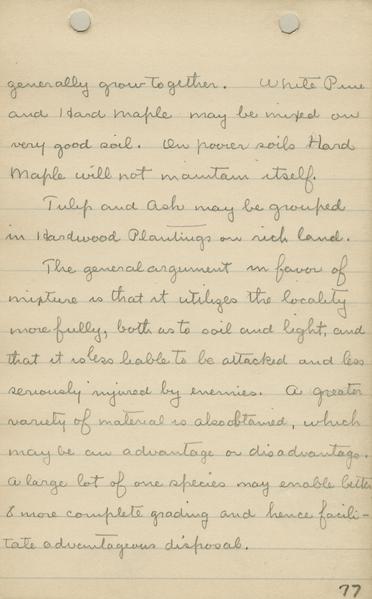 generally grow together. White Pine
and Hard maple may be mixed on
very good soil. On poorer soils Hard
Maple will not maintain itself.
Tulip and Ash may be grouped
in Hardwood Plantings on rich land.
The general argument in favor of
mixture is that it utilizes the locality
more fully, both as to soil and light, and
that it is less liable to be attacked and less
seriously injured by enemies. A greater
variety of material is also obtained, which
may be an advantage or disadvantage.
A large lot of one species may enable better
& more complete grading and hence facili-
tate advantageous disposal.
77